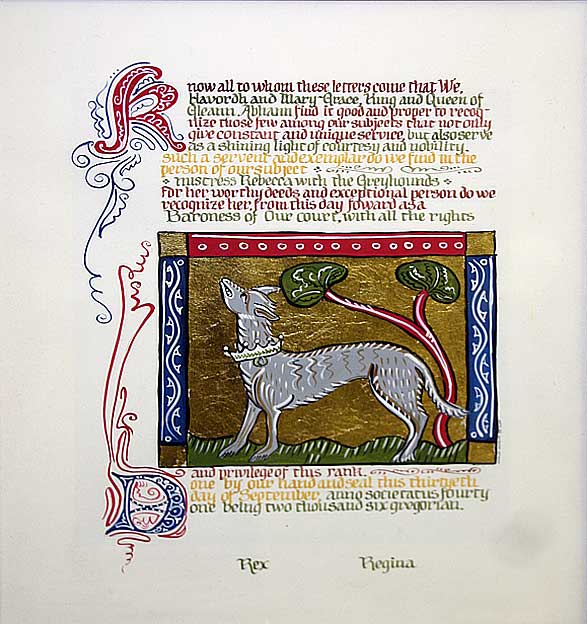 Know all to whom these letters come that We,
Havordh and Mary-Grace, King and Queen of
Gleann Abhann find it good and proper to recog-
nize those few among our subjects that not only
give constant and unique service, but also serve
as a shining light of courtesy and nobility.
Such a servent and exemplar do we find in the
person of our subject
mistress Rebecca with the Greyhounds
For her worthy deeds and exceptional person do we
recognize her, from this day foward as a
Baroness of Our court, with all the rights
and privilege of this rank.
Done by our hand and seal this thirtyeth
day of September, anno societatus fourty
one being two thousand six gregorian.
Rex Regina